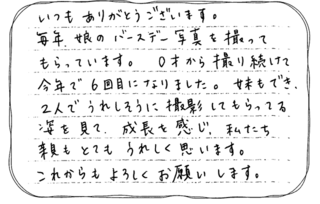 いつもありがとうございます。
毎年、娘のバースデー写真を撮って
もらっています。 0才から撮り続けて
今年で6回目になりました。妹もでき、
2人でうれしそうに撮影してもらってる
姿を見て、成長を感じ、私たち
親もとてもうれしく思います。
これからもよろしくお願いします。